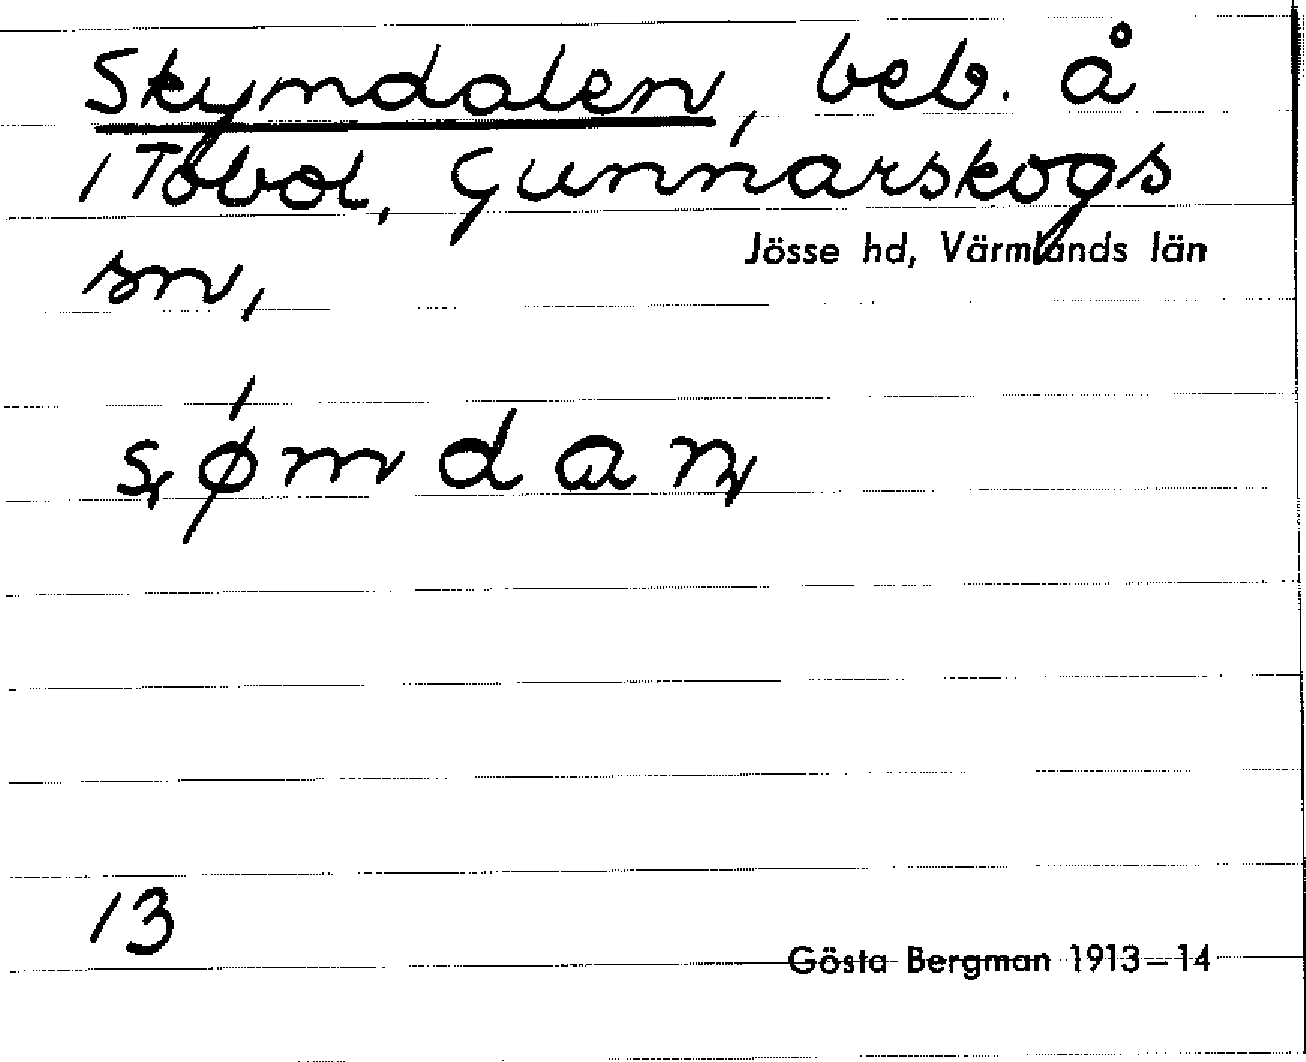 Skymdalen, beb. å
1 Tobol, Gunnarskogs
Jösse hd, Värmlands län
sn,
13
Gösta Bergman 1913–14